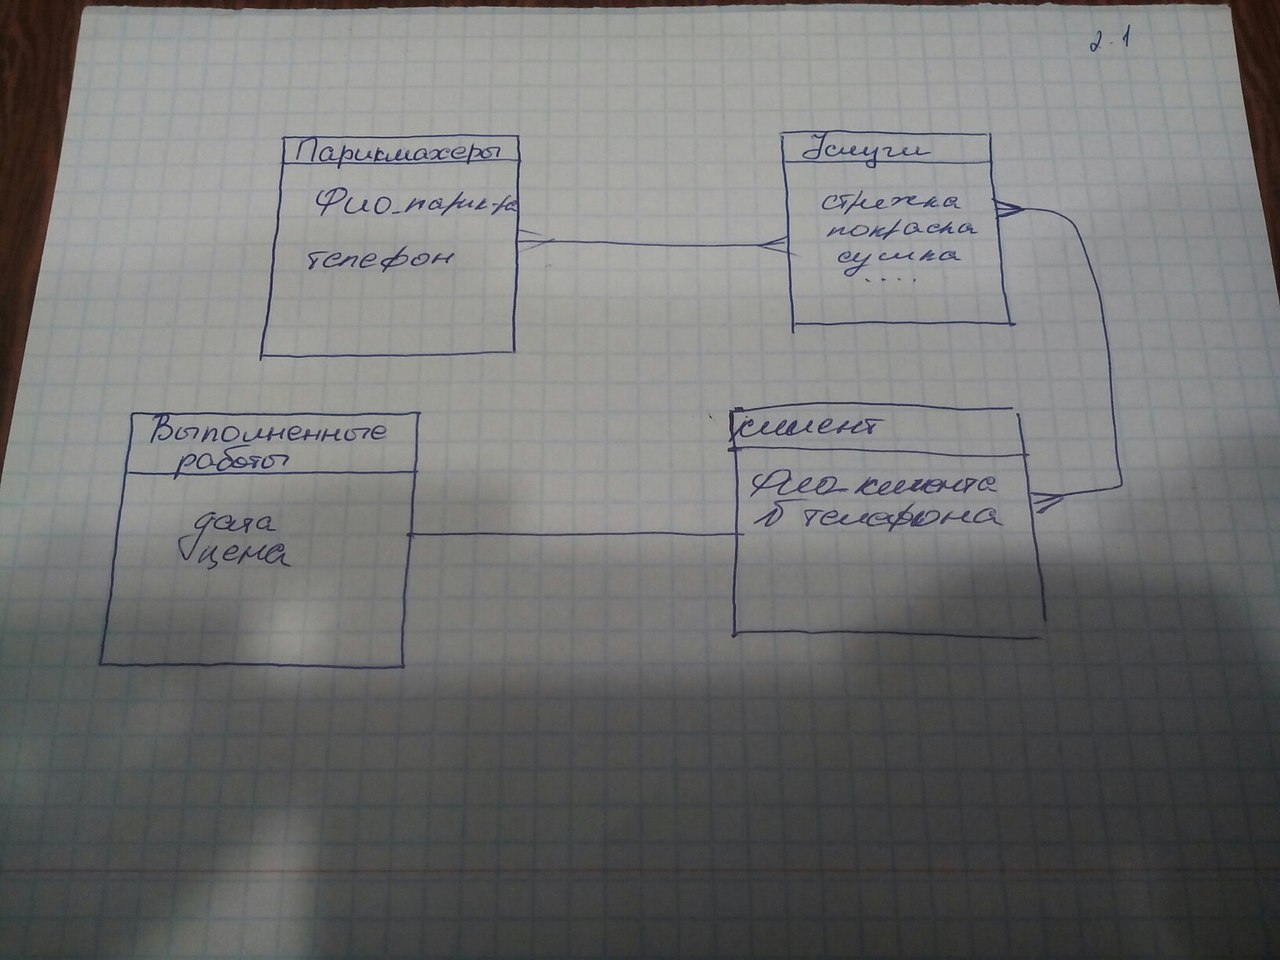 2.1
Парикмахеры
Фио_парик-ра
телефон
Услуги
стрижка
покраска
сушка
....
Выполненные
работы
дата
цена
клиент
Фио_клиента
№ телефона